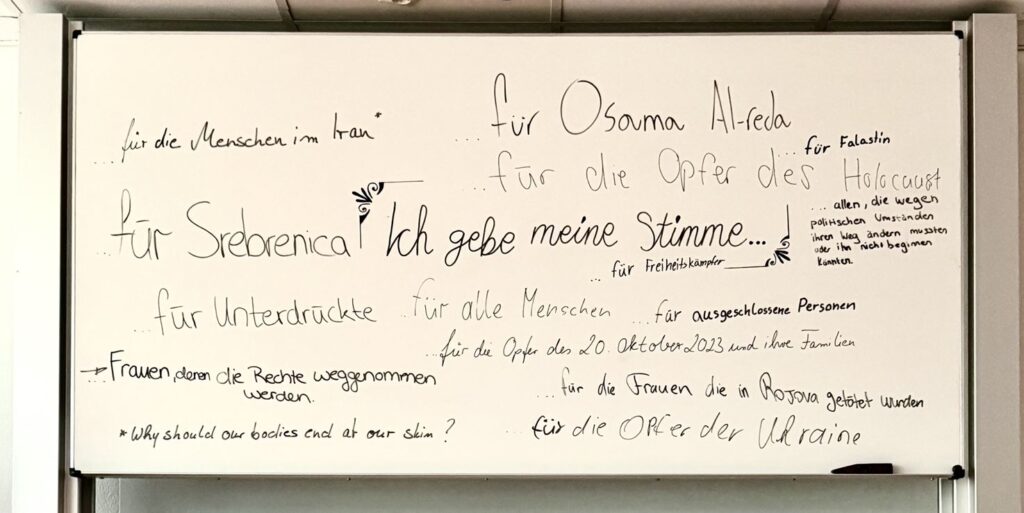 ...für die Menschen im Iran*
...für Osama Al-reda
...für Falastin
...für die Opfer des Holocaust
...für Srebrenica
Ich gebe meine Stimme...
...allen, die wegen
politischen Umständen
ihren Weg ändern mussten
oder ihn nicht beginnen
konnten.
...für Freiheitskämpfer
...für Unterdrückte
...für alle Menschen
...für ausgeschlossene Personen
...für die Opfer des 20. Oktober 2023 und ihre Familien
→...Frauen, deren die Rechte weggenommen
werden.
...für die Frauen die in Rojova getötet wurden
*Why should our bodies end at our skin?
...für die Opfer der Ukraine